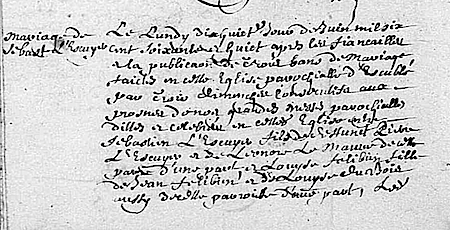 Mariage de
Sebast L'Escuyer
Le Lundy dixhuietr jour de Juin mil six
cent soixante et huict apres les fiancailles
et la publicaon de trois bans de Mariage
faictes en cette Eglise parochialle d'
par trois dimanches consecutifs aux
prosnes de nos grandes messes parochialles
dittes et celebrées en cette Eglise entre
Sebastien L'Escuyer fils de deffunct Pierre
L'Escuyer et de Leonore Le de cette
parr d'une part, et Louyse Felibien fille
de Jean Felibien et de Louyse du Bois
aussy de cette parroisse d'aue part, Les